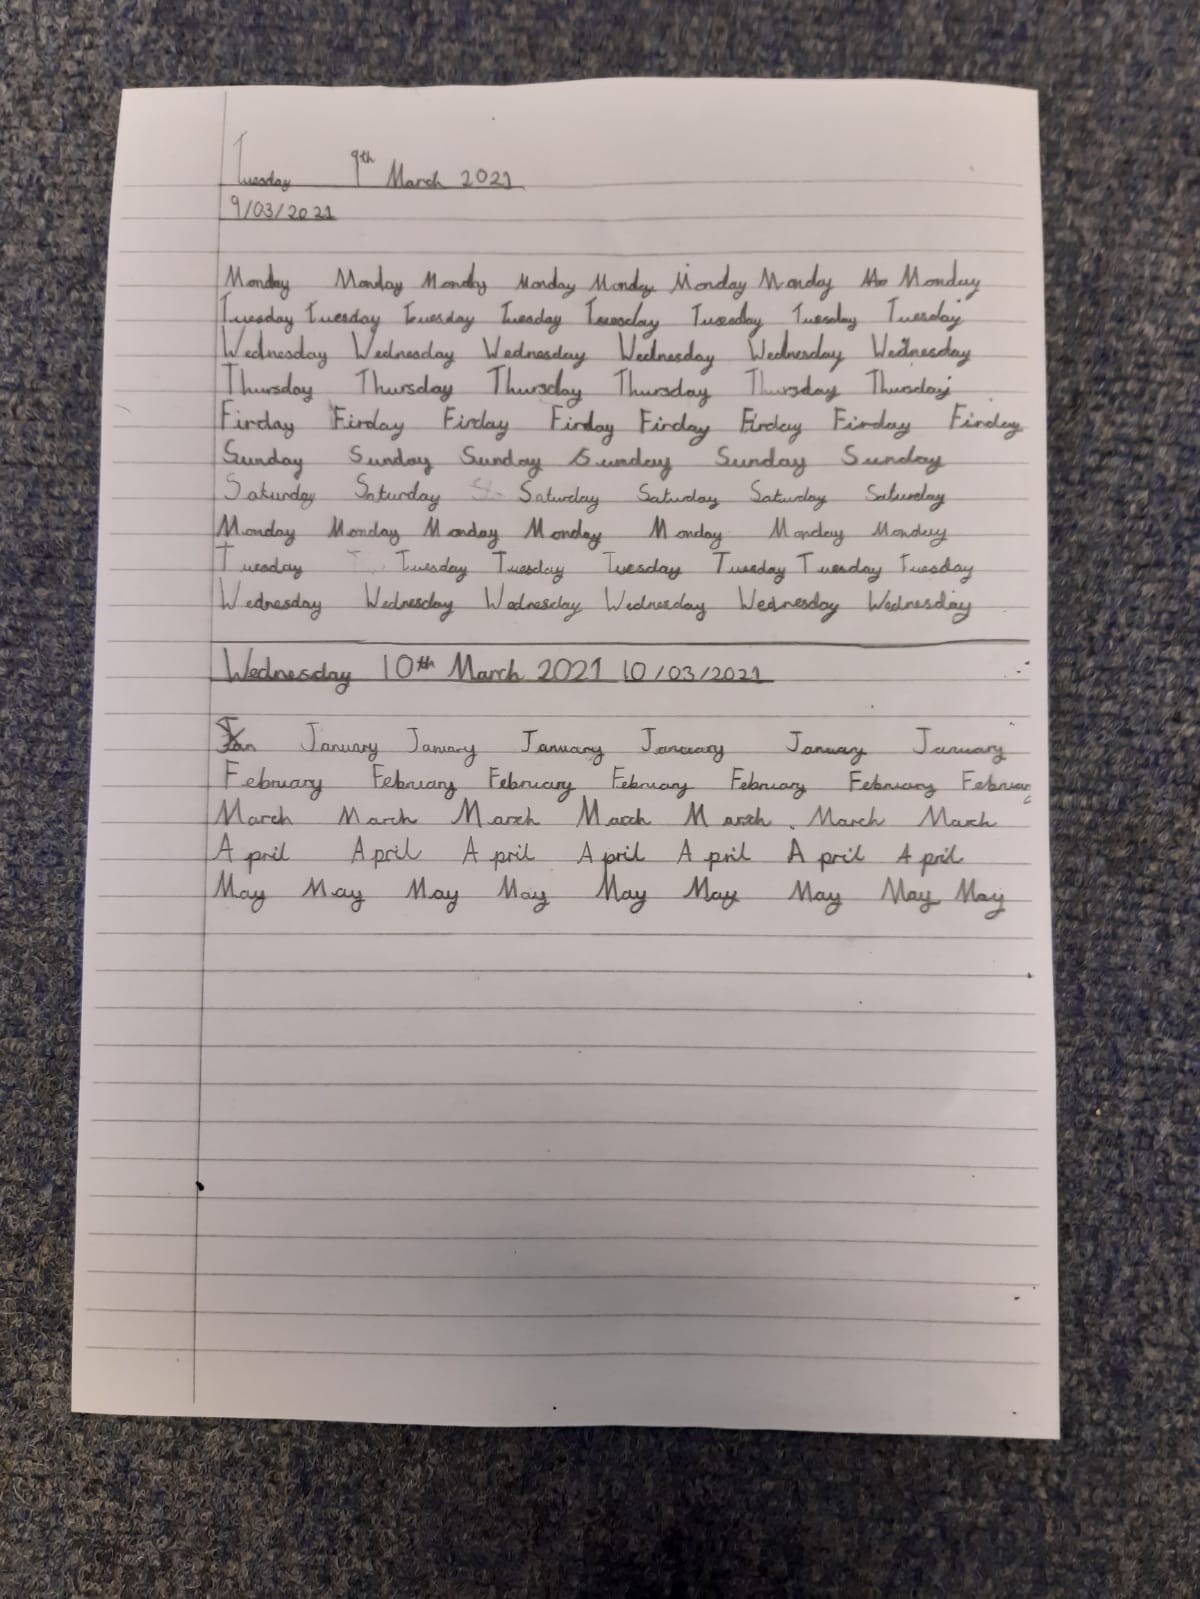 Tuesday 9th March 2021
9/03/2021
Monday Monday Monday Monday Monday Monday Monday Mo Monday
Tuesday Tuesday Tuesday Tuesday Tuesday Tuesday Tuesday Tuesday
Wednesday Wednesday Wednesday Wednesday Wednesday Wednesday
Thursday Thursday Thursday Thursday Thursday Thursday
Firday Firday Firday Firday Firday Firday Firday Firday
Sunday Sunday Sunday Sunday Sunday Sunday
Saturday Saturday Saturday Saturday Saturday Saturday
Monday Monday Monday Monday Monday Monday Monday
Tuesday Tuesday Tuesday Tuesday Tuesday Tuesday Tuesday
Wednesday Wednesday Wednesday Wednesday Wednesday Wednesday
Wednesday 10th March 2021 10/03/2021
Jan January January January January January January
February February February February February February February
March March March March March March March
April April April April April April April
May May May May May May May May May